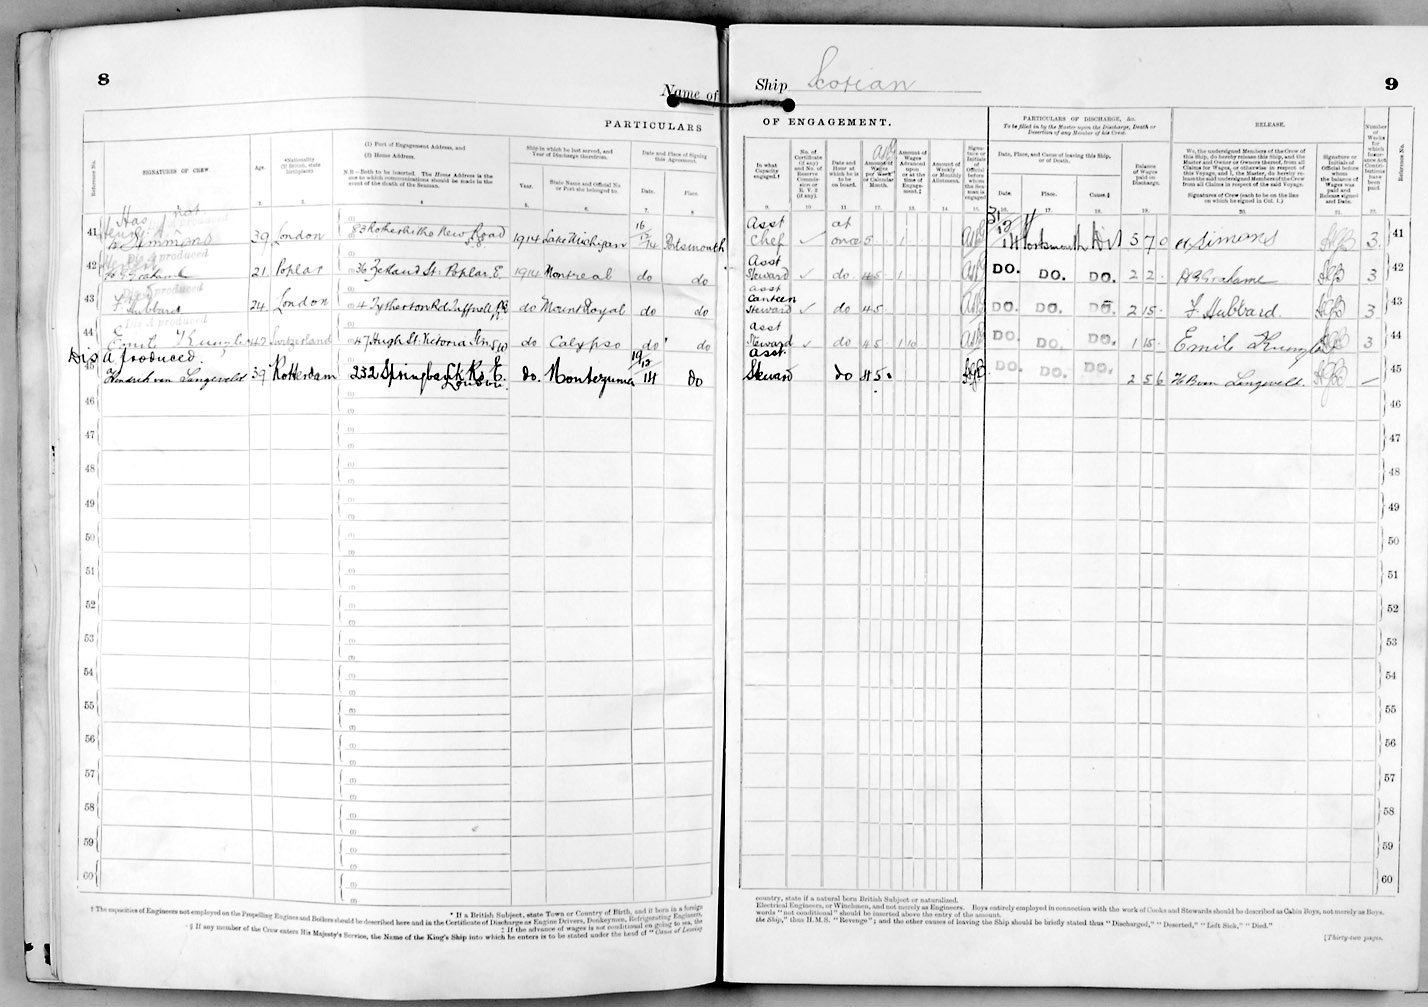 8
Name of
PARTICULARS
Reference No.
SIGNATURES OF CREW
Age.
*Nationality
(If British, state
birthplace)
(1) Port of Engagement Address, and
(2) Home Address.
N.B.—Both to be inserted. The Home Address is the
one to which communications should be made in the
event of the death of the Seaman.
Ship in which he last served, and
Year of Discharge therefrom.
Year.
State Name and Official No
or Port she belonged to.
Date and Place of Signing
this Agreement.
Date.
Place.
2. 3. 4 5. 6. 7. 8
Has not
Dis A produced
41 Simmons 39 London 83 Rotherhithe New Road S.E. 1914 Lake Michigan 16/12/14 Portsmouth
Dis A produced
42 H G Grahame 21 Poplar 36 Zetland St. Poplar E. 1914 Montreal do do
Dis A produced
43 F Hubbard 24 London 4 Tytherton Rd Tuffnell Pk do Mount Royal do do
Dis A produced
44 Emile 42 Switzerland 47 Hugh St. Victoria Stn SW do Calypso do do
Dis A produced.
45 Hendrik van Langeveld 39 Rotterdam 232 Springbank Rd. E. London. do. Montezuma 19/12/14 do
46
47
48
49
50
51
52
53
54
55
56
57
58
59
60
† The capacities of Engineers not employed on the Propelling Engines and Boilers should be described here and in the Certificate of Discharge as Engine Drivers, Donkeymen, Refrigerating Engineers,
* If a British Subject, state Town or Country of Birth, and if born in a foreign
‡ If the advance of wages is not conditional on going to sea, the
§ If any member of the Crew enters His Majesty's Service, the Name of the King's Ship into which he enters is to be stated under the head of "Cause of Leaving
Ship Scotian
9
OF ENGAGEMENT.
In what
Capacity
engaged.†
No. of
Certificate
(if any)
and No. of
Reserve
Commis-
sion or
R. V. 2
(if any).
Date and
Hour at
which he
is to
be
on board.
Amount of
Wages
per Week
or Calendar
Month.
Amount of
Wages
Advanced
upon
or at the
time of
Engage-
ment.‡
Amount of
Weekly
or Monthly
Allotment.
Signa-
ture or
Initials
of
Official
before
whom
the Sea-
man is
engaged
PARTICULARS OF DISCHARGE, &c.
To be filled in by the Master upon the Discharge, Death or
Desertion of any Member of his Crew.
Date, Place, and Cause of leaving this Ship,
or of Death.
Date.
Place.
Cause.§
Balance
of Wages
paid on
Discharge.
RELEASE.
We, the undersigned Members of the Crew of
this Ship, do hereby release this Ship, and the
Master and Owner or Owners thereof, from all
Claims for Wages, or otherwise, in respect of
this Voyage, and I, the Master, do hereby re-
lease the undersigned Members of the Crew
from all Claims in respect of the said Voyage.
Signatures of Crew (each to be on the line
on which he signed in Col. 1.)
Signature or
Initials of
Official before
whom
the balance of
Wages was
paid and
Release signed
and Date.
Number
of
Weeks
for
which
Insur-
ance Act
Contri-
butions
have
been
paid.
Reference No.
9. 10 11 12. 13. 14. 15. 16. 17. 18. 19. 20. 21. 22.
Asst Chef at once 5 1 31/12/14 Portsmouth Dis 5 7 0 Simons 3. 41
Asst Steward do. 4 5 1 DO. DO. DO. 2 2 H G Grahame 3 42
asst Canteen Steward do 4 5 DO. DO. DO. 2 15 F Hubbard. 3 43
asst Steward do 4 5 1 10 DO. DO. DO. 1 15 Emile 3 44
Asst. Steward do 4 5 DO. DO. DO. 2 5 6 Langeveld. — 45
46
47
48
49
50
51
52
53
54
55
56
57
58
59
60
country, state if a natural born British Subject or naturalized.
Electrical Engineers, or Winchmen, and not merely as Engineers. Boys entirely employed in connection with the work of Cooks and Stewards should be described as Cabin Boys, not merely as Boys.
words "not conditional" should be inserted above the entry of the amount.
the Ship," thus H.M.S. "Revenge"; and the other causes of leaving the Ship should be briefly stated thus "Discharged," "Deserted," "Left Sick," "Died."
[Thirty-two pages.